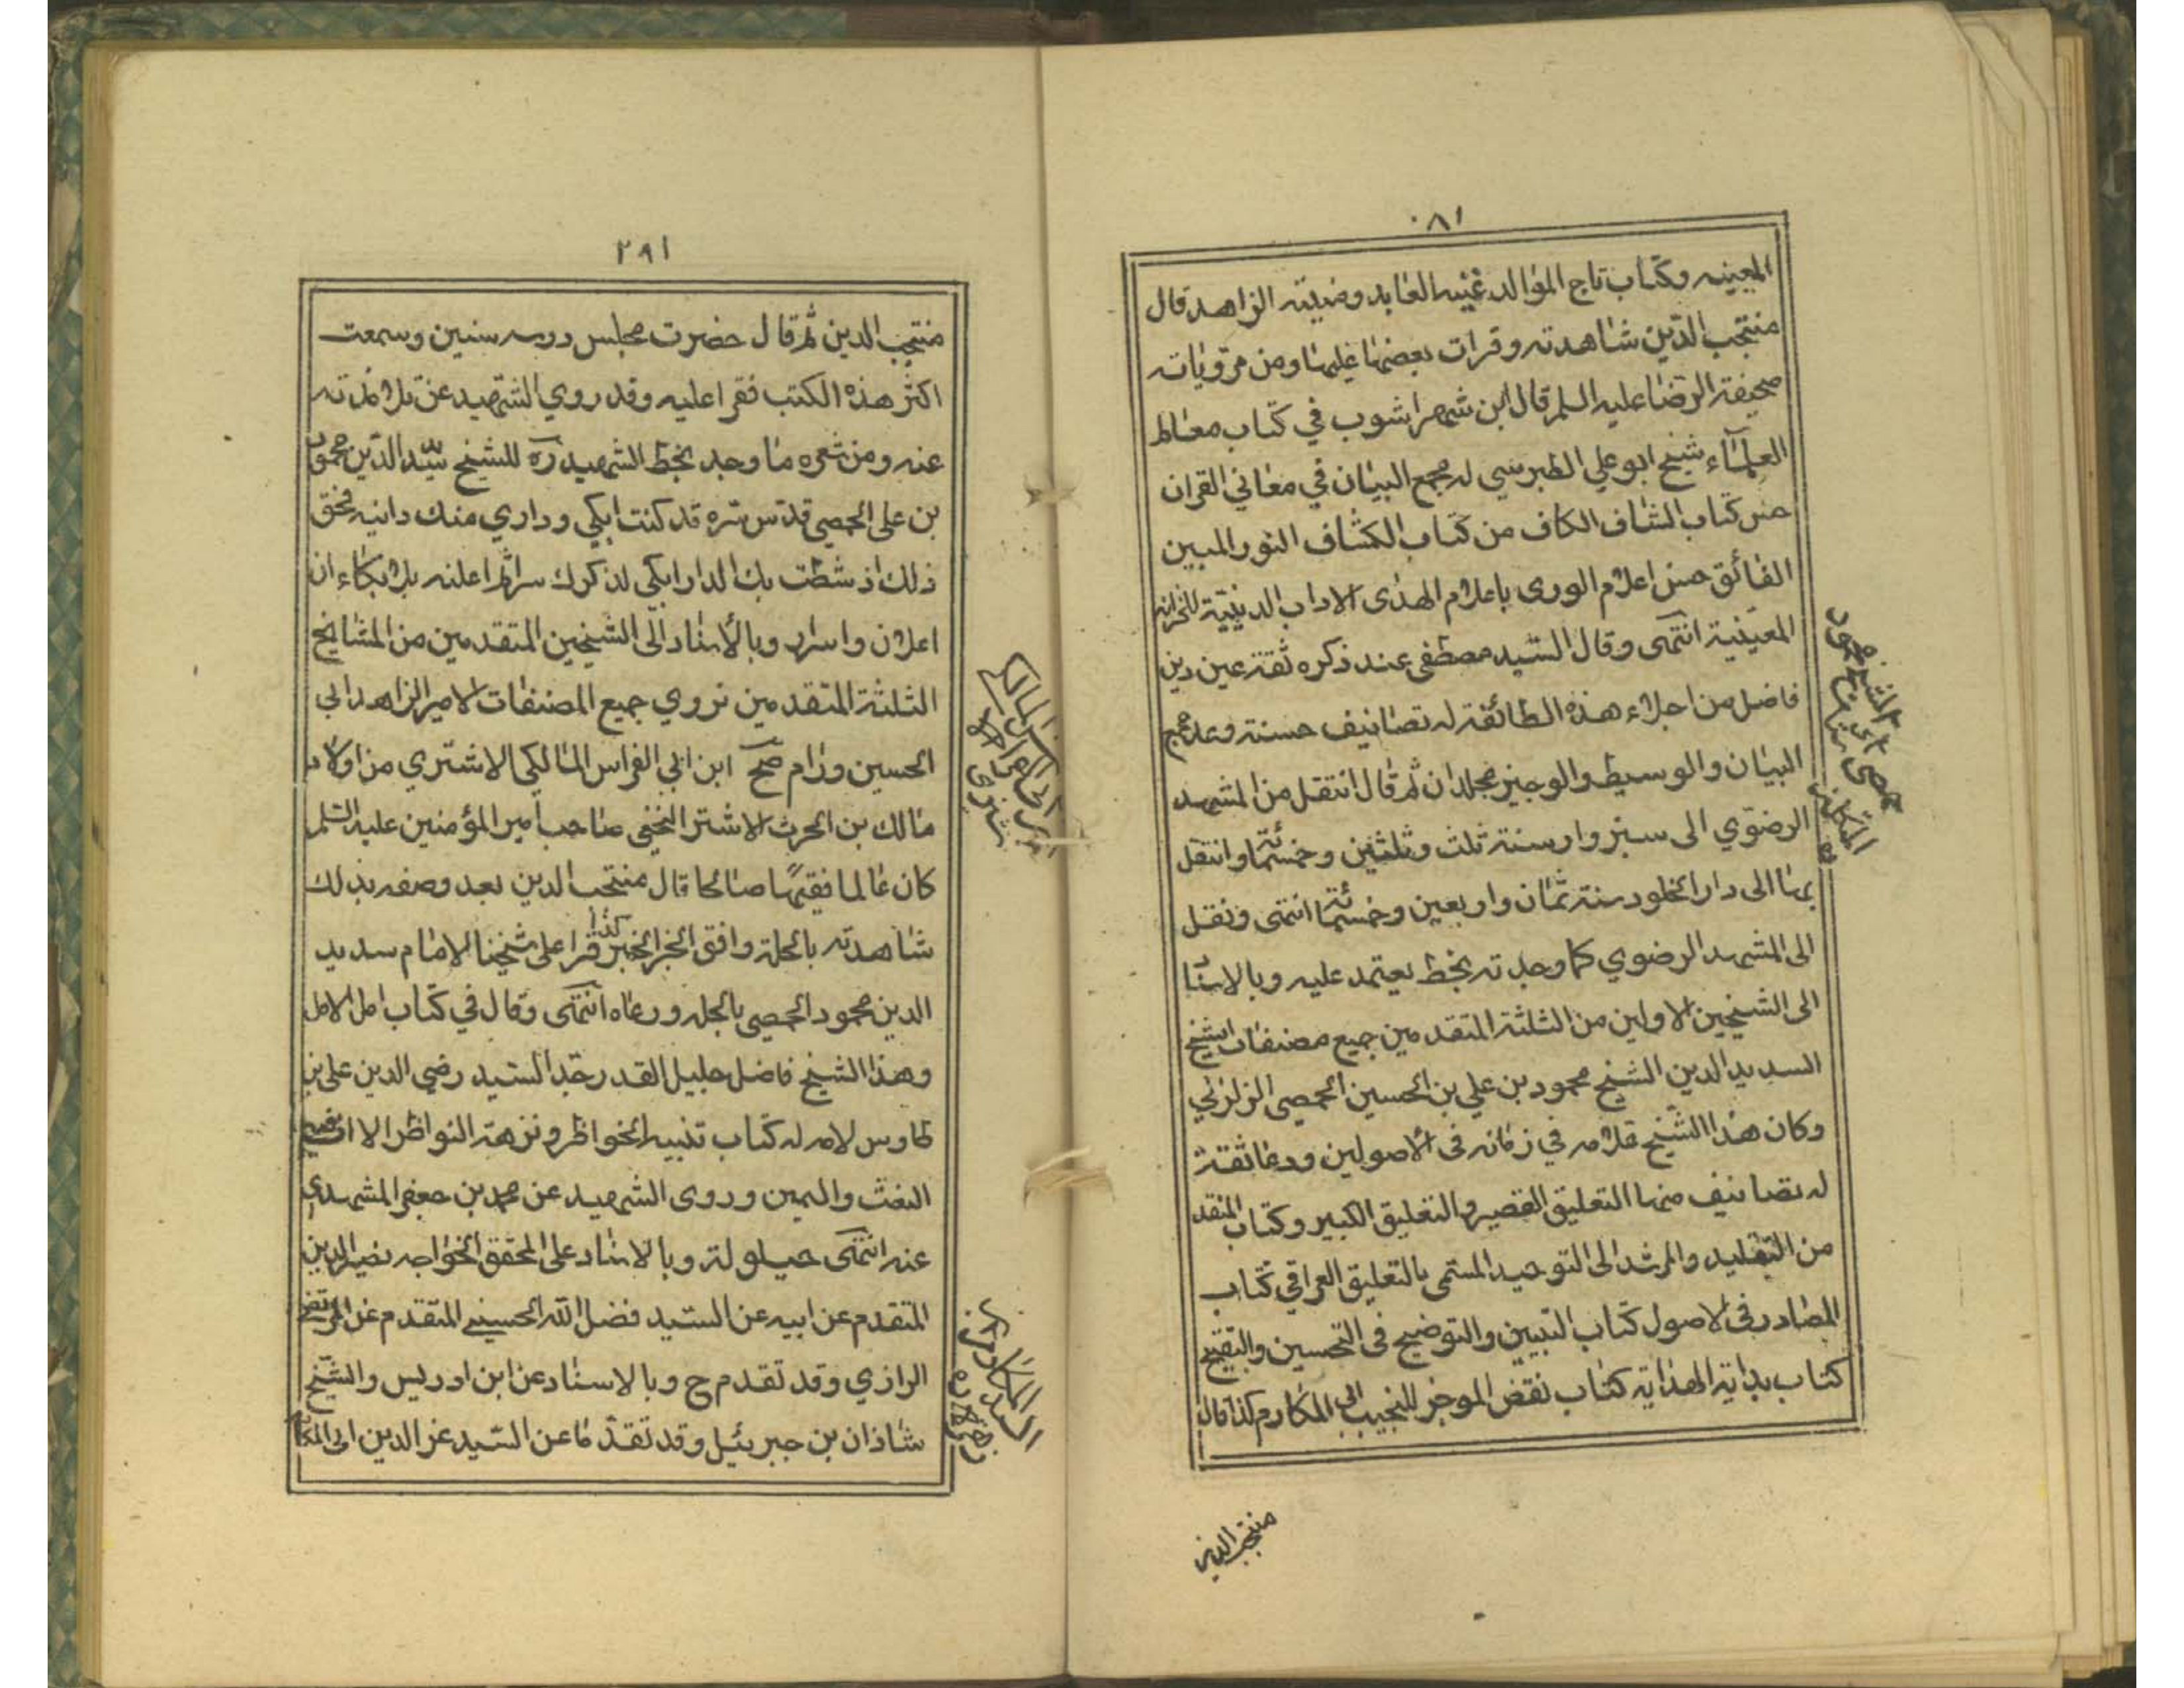 ٠٨١
المعينيه وكتاب تاج المواليد غنيه العابد ومنيته الزاهد قال
منتجب الدين شاهدته وقرات بعضها عليها ومن مرويات
صحيفة الرضا عليه السلم قال ابن شهراشوب في كتاب معالم
العلمآء شيخ ابو علي الطبرسي له مجمع البيان في معاني القران
حسن كتاب الشاف الكاف من كتاب الكشاف النور المبين
الفائق حسن اعلام الورى باعلام الهدى الاداب الدينية للخزانه
المعينية انتهى وقال السيد مصطفى عند ذكره ثقة عين دين
فاضل من اجلاء هذه الطائفة له تصانيف حسنة وعد مجمع
البيان والوسيط والوجيز مجلدان ثم قال انتقل من المشهد
الرضوي الى سبزوار سنة ثلث وثلثين وخمسمائة وانتقل
بها الى دار الخلود سنة ثمان واربعين وخمسمائة انتهى ونقل
الى المشهد الرضوي كما وجدته بخط يعتمد عليه وبالاسناد
الى الشيخين الاولين من الثلثة المتقدمين جميع مصنفات الشيخ
السديد الدين الشيخ محمود بن علي بن الحسين الحمصي الرازي
وكان هذا الشيخ علامه في زمانه في الاصولين ورعا ثقة
له تصانيف منها التعليق الصغير والتعليق الكبير وكتاب المنقذ
من التقليد والمرشد الى التوحيد المسمى بالتعليق العراقي كتاب
المصادر في الاصول كتاب التبيين والتوضيح في التحسين والتقبيح
كتاب بداية الهداية كتاب نقض الموجز للنجيب ابي المكارم كذا قال
منتجب الدين
٢٩١
منتجب الدين ثم قال حضرت مجلس درسه سنين وسمعت
اكثر هذه الكتب فقرا عليه وقد روي الشهيد عن تلامذته
عنه ومن شعره ما وجد بخط الشهيد ره للشيخ سديد الدين محمود
بن علي الحمصي قدس سره قد كنت ابكي وداري منك دانيه فحق
ذلك اذ شطت بك الدار ابكي لذكرك سرا ثم اعلنه بلا بكاء ان
اعلان واسرار وبالأسناد الى الشيخين المتقدمين من المشايخ
الثلثة المتقدمين نروي جميع المصنفات الامير الزاهد ابي
الحسين ورام صح ابن ابي الفراس المالكي الاشتري من اولاد
مالك بن الحرث الاشتر النخعي صاحب امير المؤمنين عليه السلم
كان عالما فقيهًا صالحا قال منتجب الدين بعد وصفه بذلك
شاهدته بالحلة وافق الخبر الخبر كذا قرا على شيخنا الامام سديد
الدين محمود الحمصي بالحله ورعاه انتهى وقال في كتاب امل الامل
وهذا الشيخ فاضل جليل القدر جد السيد رضي الدين علي بن
طاوس لامه له كتاب تنبيه الخواطر ونزهة النواظر الا ان فيه
الغث والسمين وروى الشهيد عن محمد بن جعفر المشهدي
عنه انتهى حيلولة وبالاسناد على المحقق الخواجه نصير الدين
المتقدم عن ابيه عن السيد فضل الله الحسيني المتقدم عن المرتضى
الرازي وقد تقدم ح وبالاسناد عن ابن ادريس والشيخ
شاذان بن جبرئيل وقد تقدما عن السيد عز الدين ابي المكارم